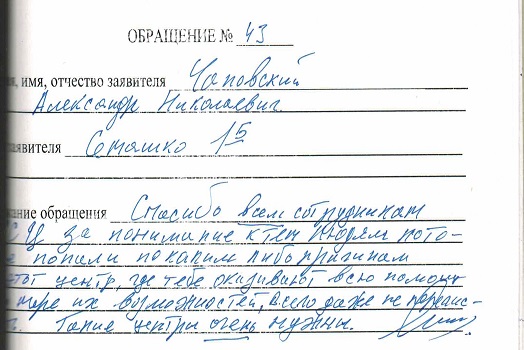 ОБРАЩЕНИЕ № 43
имя, отчество заявителя Чаповский
Александр Николаевич
заявителя Сташко 15
обращения Спасибо всем сотрудникам
за понимание к тем людям кото-
попали по каким либо причинам
этот центр, где тебе оказывают всю помощь
мере их возможностей, всего даже не
Такие центры очень нужны.